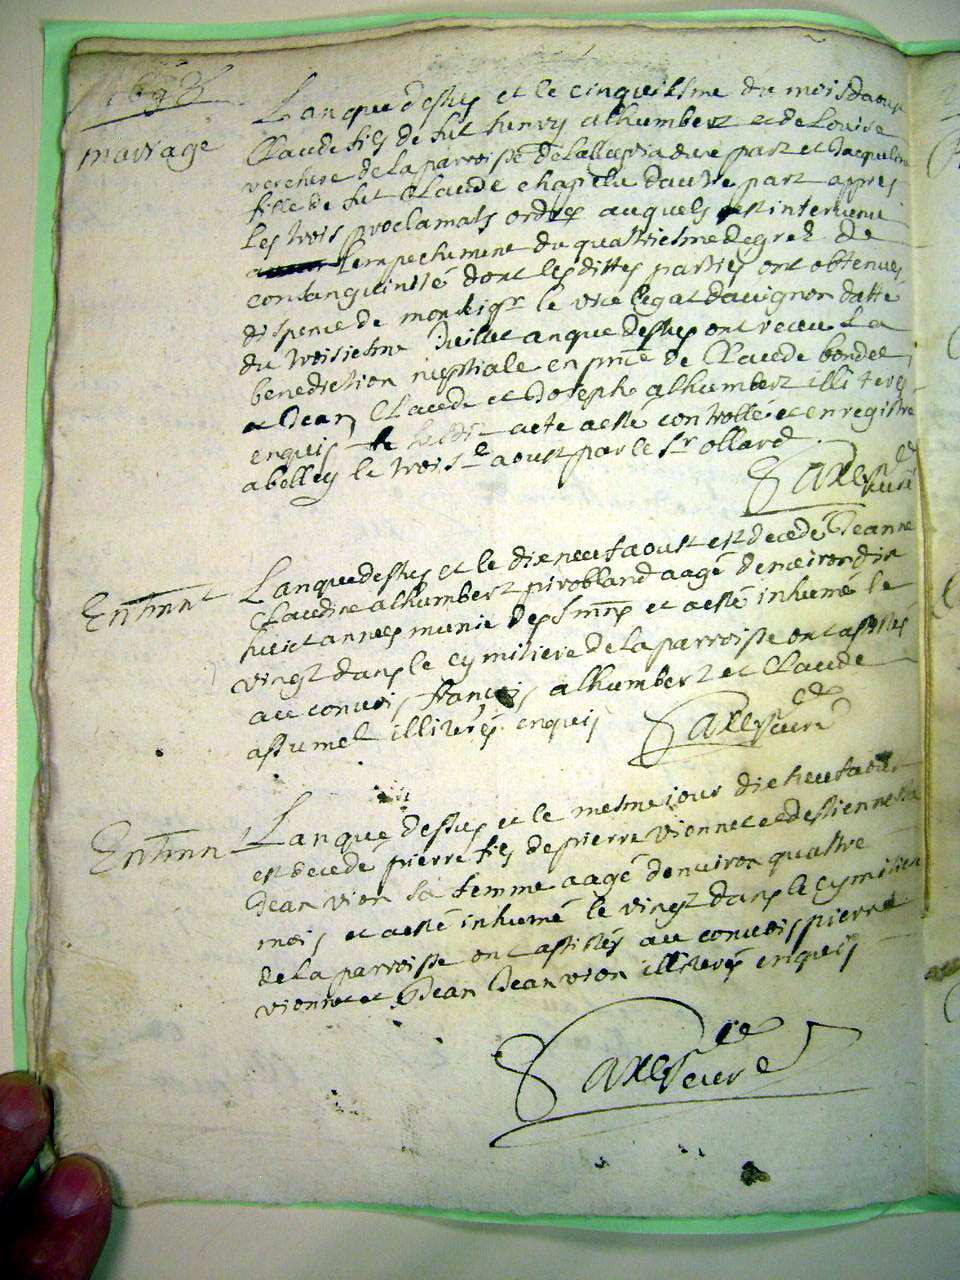 1698
mariage
Lan que dessus et le cinquiesme du mois daoust
Claude fils de fut henry alhumbert et de Louise
verchere de la parroisse de dune part et Jacqueline
fille de fut Claude chapelu dautre part appres
les trois proclamats ordres auquels est intervenu
lempechement du quattriesme degrez de
consanguinité dont lesdittes parties ont obtenues
dispence de monseigr le vice legat davignon datté
du troisiesme Juillet an que dessus ont receu la
benediction nuptiale en pnce de Claude bondet
et Jean Claude et Joseph alhumbert illiteres
enquis le acte a esté controllé et enregistré
a belley le trois e aoust par le Sr ollard
Saxe curé
Enterrmnt
Lan que dessus et le dieneuf aoust est decedé Jeanne
Claudine alhumbert pirobland aagé denviron dix
huict annees munie des Smnts et a esté inhumé le
vingt dans le cymitiere de la parroisse ont assistés
au convois françois alhumbert et Claude
assumel illiterés enquis
Saxe curé
Enterrmnt
Lan que dessus et le mesme jour dieneuf aoust
est decedé pierre fils de pierre vionnet et destiennette
Jean vion sa femme aagé denviron quattre
mois et a esté inhumé le vingt dans le cymitiere
de la parroisse ont assistés au convois pierre
vionnet et Jean Jean vion illiterés enquis
Saxe curé